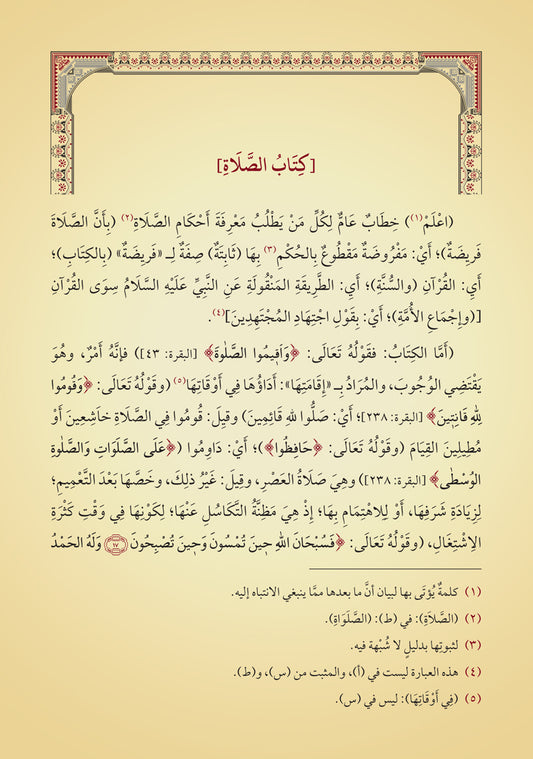 [كِتَابُ الصَّلَاةِ]
(اعْلَمْ(١)) خِطَابٌ عَامٌّ لِكُلِّ مَنْ يَطْلُبُ مَعْرِفَةَ أَحْكَامِ الصَّلَاةِ(٢) (بِأَنَّ الصَّلَاةَ
فَرِيضَةٌ)؛ أَيْ: مَفْرُوضَةٌ مَقْطُوعٌ بِالحُكْمِ(٣) بِهَا (ثَابِتَةٌ) صِفَةٌ لِـ «فَرِيضَةٌ» (بِالكِتَابِ)؛
أَيِ: القُرْآنِ (والسُّنَّةِ)؛ أَيِ: الطَّرِيقَةِ المَنْقُولَةِ عَنِ النَّبِيِّ عَلَيْهِ السَّلَامُ سِوَى القُرْآنِ
[(وإِجْمَاعِ الأُمَّةِ)؛ أَيْ: بِقَوْلِ اجْتِهَادِ المُجْتَهِدِينَ](٤).
(أَمَّا الكِتَابُ: فقَوْلُهُ تَعَالَى: ﴿وَاَقِيمُوا الصَّلٰوةَ﴾ [البقرة: ٤٣]) فإنَّهُ أَمْرٌ، وهُوَ
يَقْتَضِي الوُجُوبَ، والمُرَادُ بِـ «إِقَامَتِهَا»: أَدَاؤُهَا فِي أَوْقَاتِهَا(٥) (وقَوْلُهُ تَعَالَى: ﴿وَقُومُوا
لِلهِ قَانِتِينَ﴾ [البقرة: ٢٣٨]؛ أَيْ: صَلُّوا للهِ قَائِمِينَ) وقِيلَ: قُومُوا فِي الصَّلَاةِ خَاشِعِينَ أَوْ
مُطِيلِينَ القِيَامَ (وقَوْلُهُ تَعَالَى: ﴿حَافِظُوا﴾)؛ أَيْ: دَاوِمُوا (﴿عَلَى الصَّلَوَاتِ وَالصَّلٰوةِ
الوُسْطٰى﴾ [البقرة: ٢٣٨]) وهِيَ صَلَاةُ العَصْرِ، وقِيلَ: غَيْرُ ذلِكَ، وخَصَّهَا بَعْدَ التَّعْمِيمِ؛
لِزِيَادَةِ شَرَفِهَا، أَوْ لِلاهْتِمَامِ بِهَا؛ إِذْ هِيَ مَظِنَّةُ التَّكَاسُلِ عَنْهَا؛ لِكَوْنِهَا فِي وَقْتِ كَثْرَةِ
الاِشْتِغَالِ، (وقَوْلُهُ تَعَالَى: ﴿فَسُبْحَانَ اللهِ حِينَ تُمْسُونَ وَحِينَ تُصْبِحُونَ ١٧ وَلَهُ الحَمْدُ
(١) كلمةٌ يُؤتَى بها لبيان أنَّ ما بعدها ممَّا ينبغي الانتباه إليه.
(٢) (الصَّلَاةِ): في (ط): (الصَّلَوَاةِ).
(٣) لثبوتِها بدليلٍ لا شُبْهة فيه.
(٤) هذه العبارة ليست في (أ)، والمثبت من (س)، و(ط).
(٥) (فِي أَوْقَاتِهَا): ليس في (س).